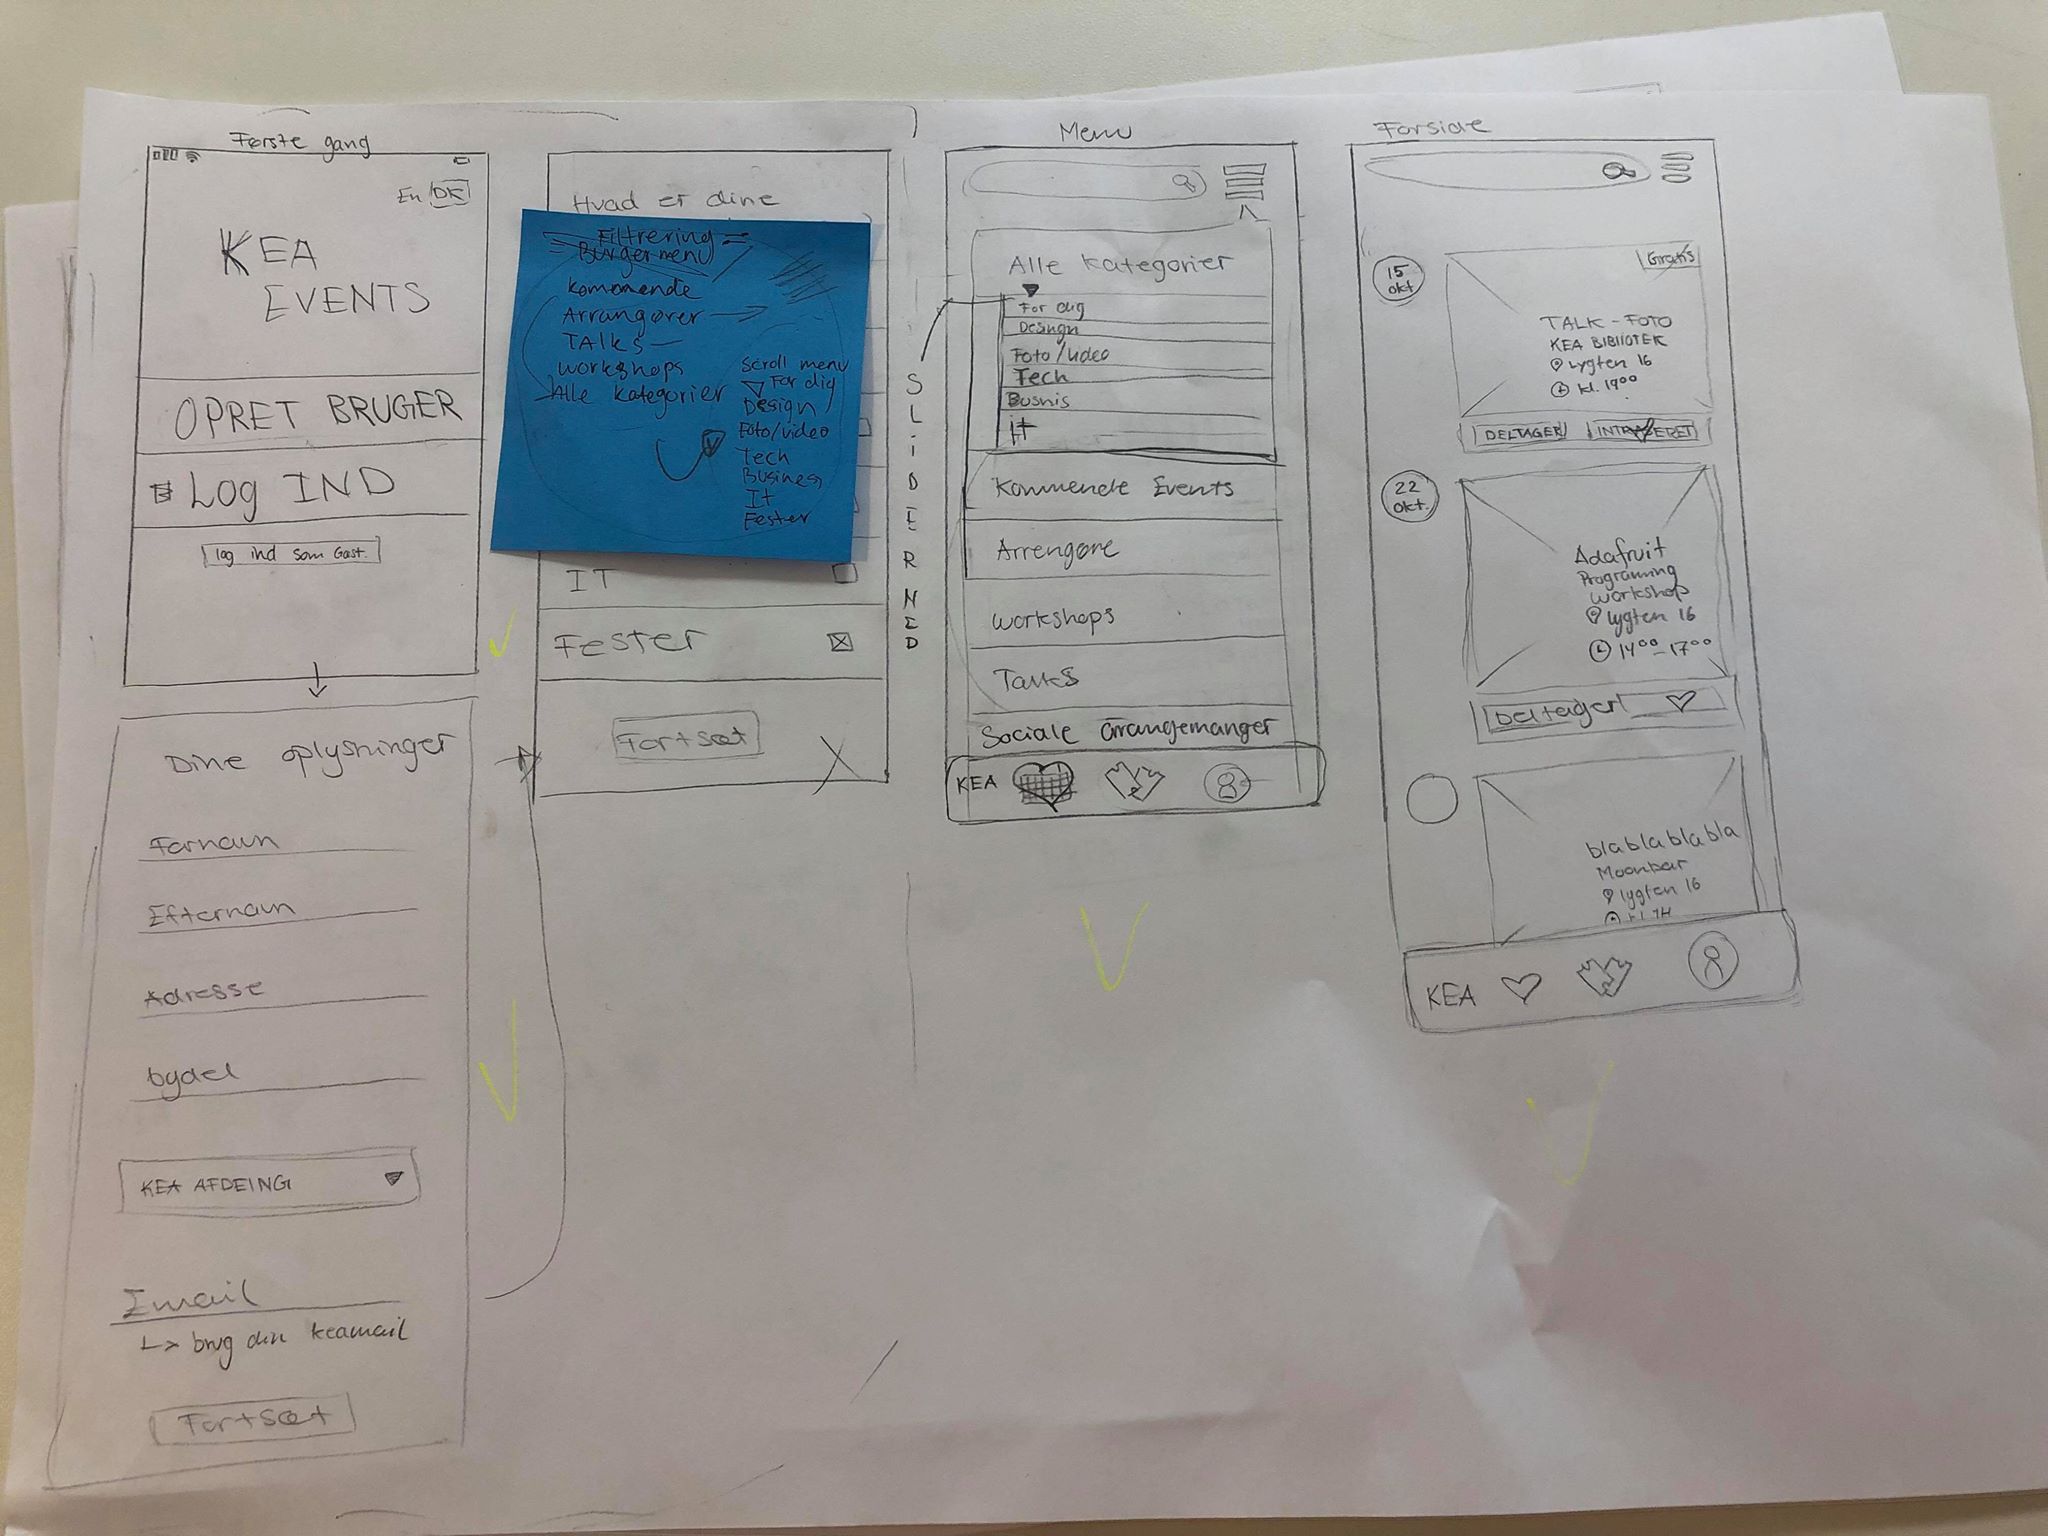 Første gang
En DK
KEA
EVENTS
OPRET BRUGER
Log IND
log ind som Gæst.
Dine oplysninger
Fornavn
Efternavn
Adresse
bydel
KEA AFDEING
Email
↳ brug din keamail
Fortsæt
Hvad er dine
Filtrering =
= Burgermenu
kommende
Arrangører →
TAlks —
workshops
Alle kategorier
Scroll menu
▽ For dig
Design
Foto/video
Tech
Busines
It
Fester
IT
Fester
Fortsæt
SLIDER NED
Menu
Alle kategorier
For dig
Design
Foto/video
Tech
Busnis
it
Kommende Events
Arrengøre
workshops
Talks
Sociale arrangemanger
KEA
Forside
15
okt
Gratis
TALK - FOTO
KEA BIBIIOTEK
Lygten 16
kl. 19⁰⁰
DELTAGER
22
okt.
Adafruit
Programing
workshop
lygten 16
14⁰⁰-17⁰⁰
Deltager
blablablabla
Moonbar
lygten 16
KEA